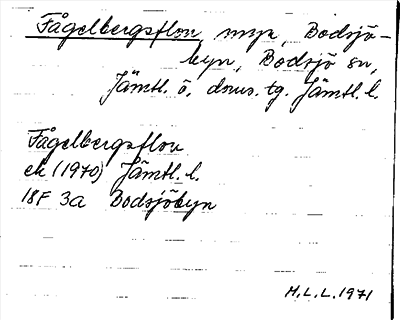 Fågelbergsflon, myr, Bodsjö-
byn, Bodsjö sn,
Jämtl. ö. dnus. tg. Jämtl. l.
Fågelbergsflon
ek (1970) Jämtl. l.
18F 3a Bodsjöbyn
H.L.L. 1971